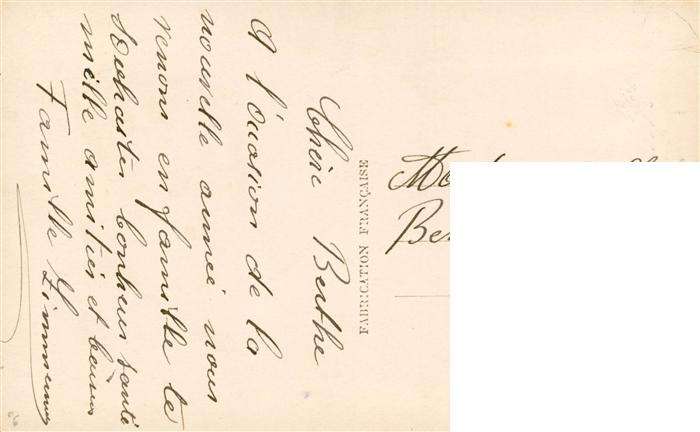 Chère Berthe
A l'occasion de la
nouvelle année nous
venons en famille te
souhaiter bonheur santé
mille amitiés et baisers
Famille Zimmerman
FABRICATION FRANÇAISE